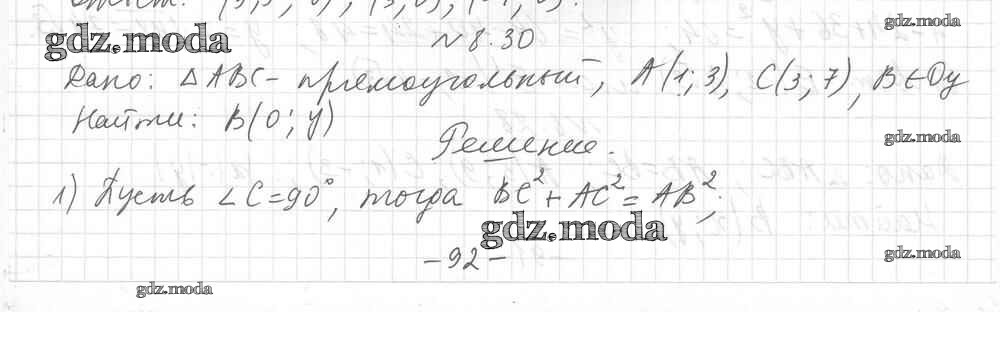 Ответ: (3,5; 0), (3; 0), (-1; 0).
gdz.moda
gdz.moda
№ 8.30
Дано: △ ABC - прямоугольный, A(1; 3), C(3; 7), B ∈ Oy
Найти: B(0; y)
gdz.moda
Решение.
1) Пусть ∠C = 90°, тогда BC² + AC² = AB²;
gdz.moda
gdz.moda
- 92 -
gdz.moda